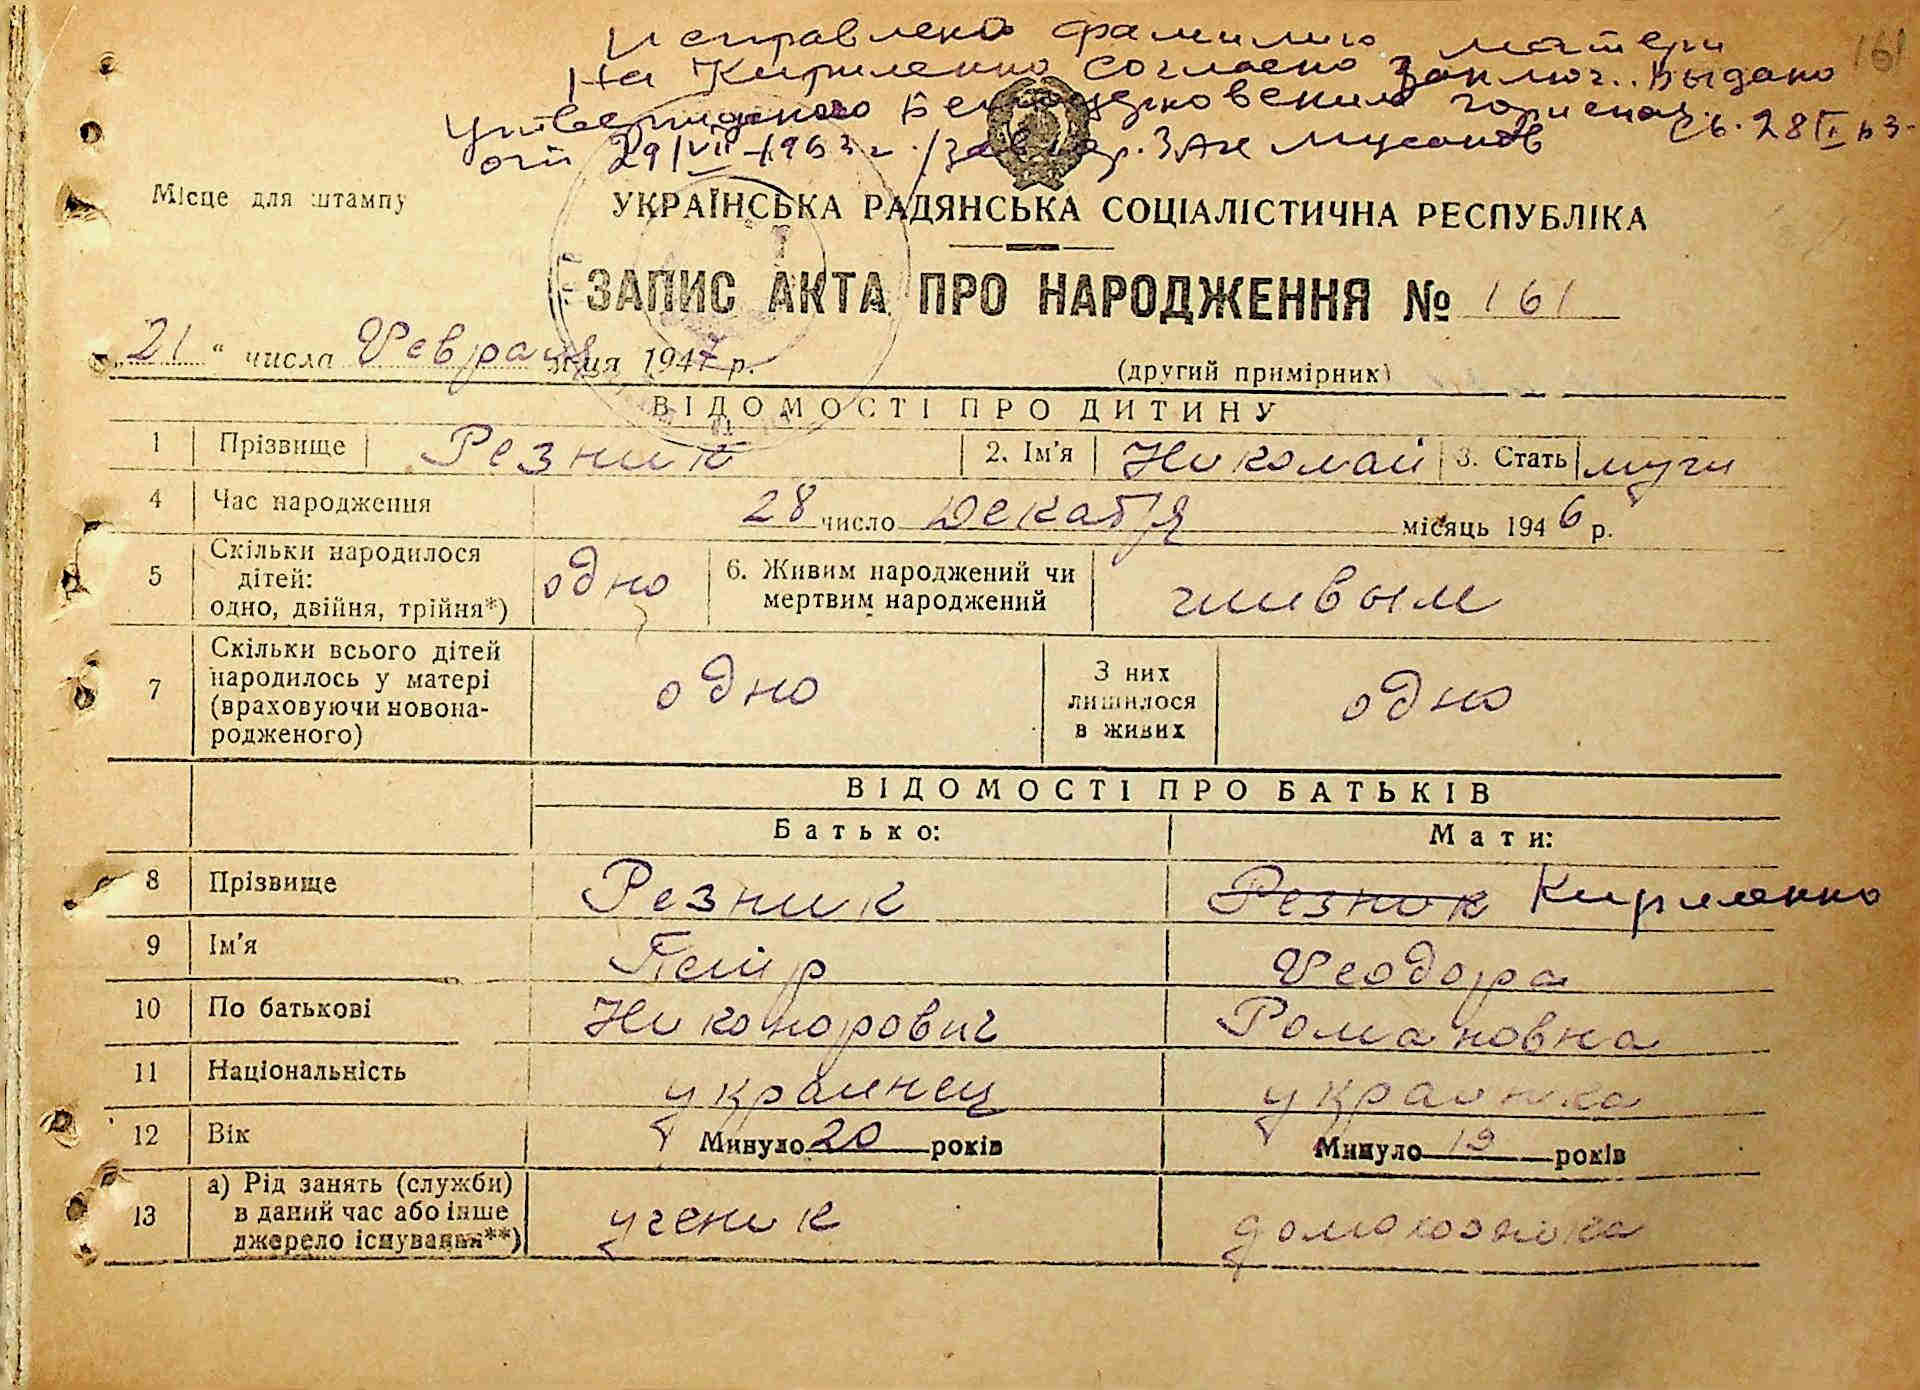 Исправлена фамилию матери
На Кириленко согласно Заключ.. выдано
утвержденого горисполк. Св. 28 I 63.
от 29/VII-1963 г.
161
Місце для штампу
УКРАЇНСЬКА РАДЯНСЬКА СОЦІАЛІСТИЧНА РЕСПУБЛІКА
ЗАПИС АКТА ПРО НАРОДЖЕННЯ № 161
„21“ числа Февраля м-ця 1947 р.
(другий примірник)
ВІДОМОСТІ ПРО ДИТИНУ
1 Прізвище Резник 2. Ім'я Николай 3. Стать муж
4 Час народження 28 число Декабря місяць 1946 р.
5 Скільки народилося дітей: одно, двійня, трійня*) одно 6. Живим народжений чи мертвим народжений живым
7 Скільки всього дітей народилось у матері (враховуючи новонародженого) одно З них лишилося в живих одно
ВІДОМОСТІ ПРО БАТЬКІВ
Батько: Мати:
8 Прізвище Резник Резник Кириленко
9 Ім'я Петр Феодора
10 По батькові Никонорович Романовна
11 Національність украинец украинка
12 Вік Минуло 20 років Минуло 19 років
13 а) Рід занять (служби) в даний час або інше джерело існування**) ученик домохозяйка